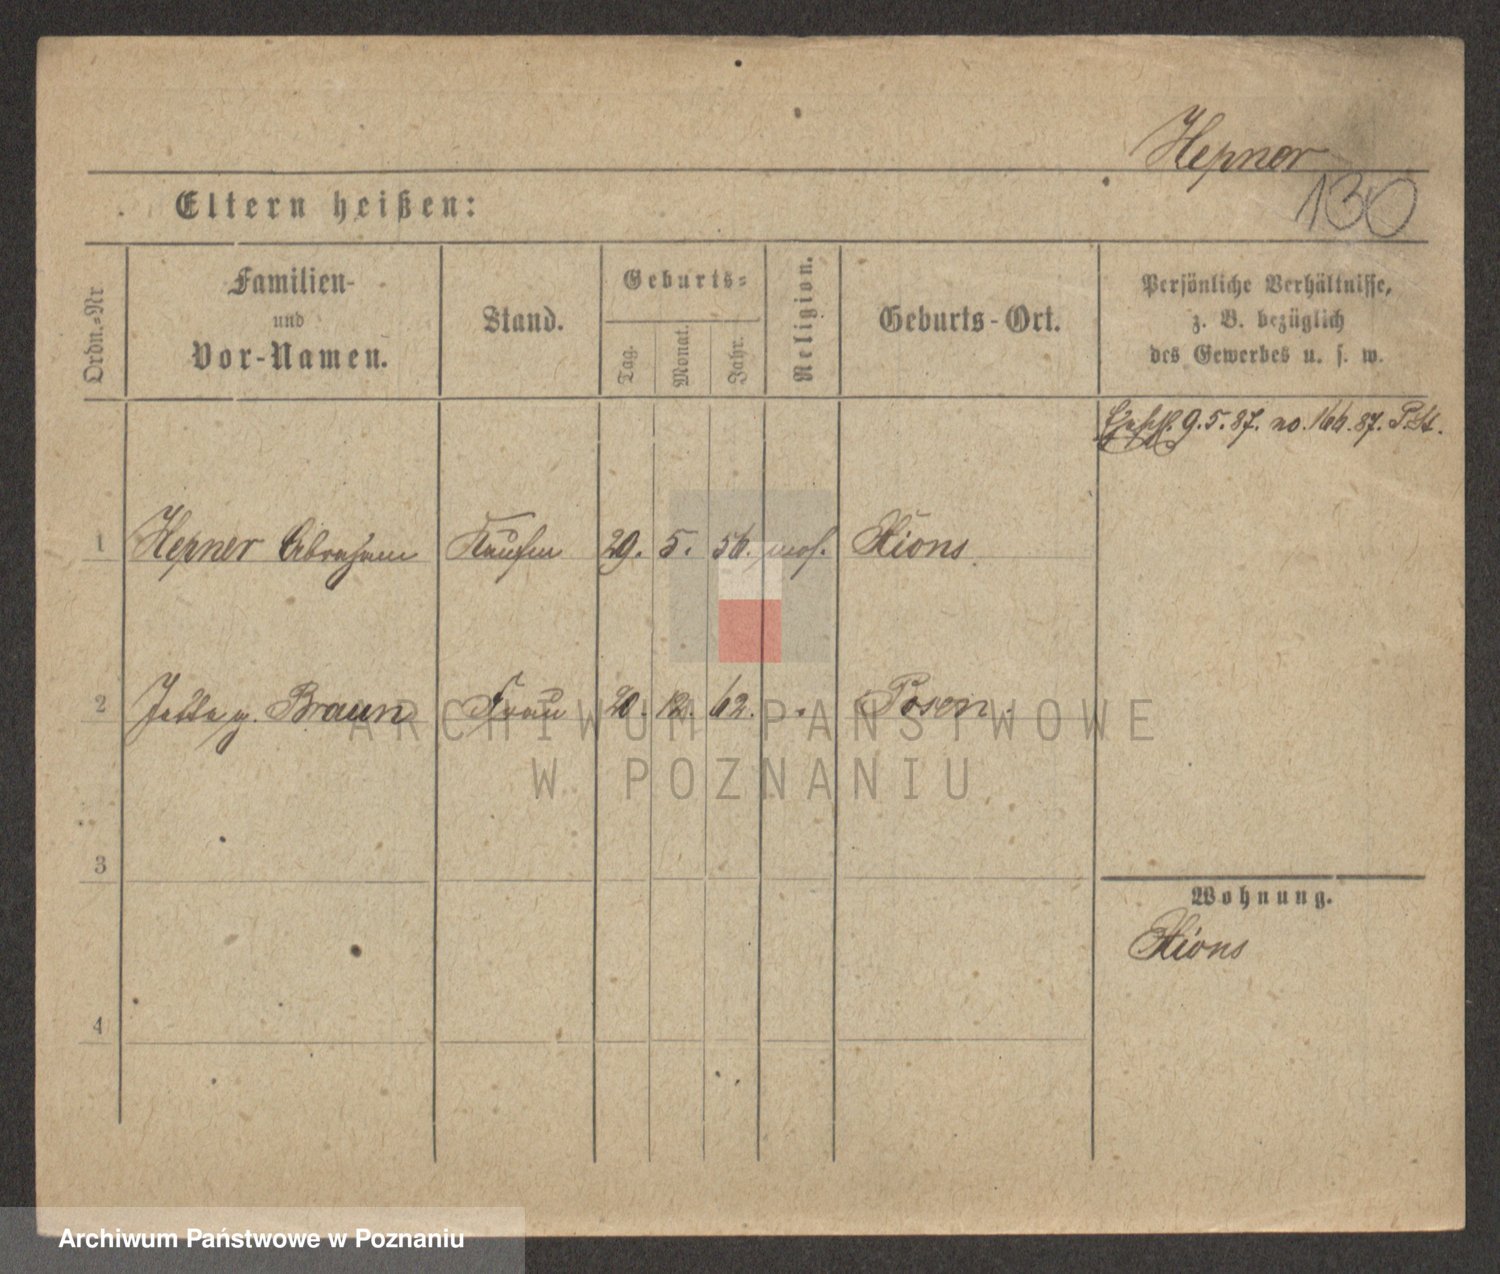 Hepner
130
Eltern heißen:
Ordn.-Nr
Familien-
und
Vor-Namen.
Stand.
Geburts-
Tag.
Monat.
Jahr.
Religion.
Geburts-Ort.
Persönliche Verhältnisse,
z. B. bezüglich
des Gewerbes u. s. w.
9.5.87. no. 166.87. P.St.
1 Hepner Abraham Kaufm 29. 5. 56. mos. Xions
2 Jette g. Braun Frau 20. 12. 62. " Posen.
ARCHIWUM PAŃSTWOWE
W POZNANIU
3
Wohnung.
Xions
4
Archiwum Państwowe w Poznaniu